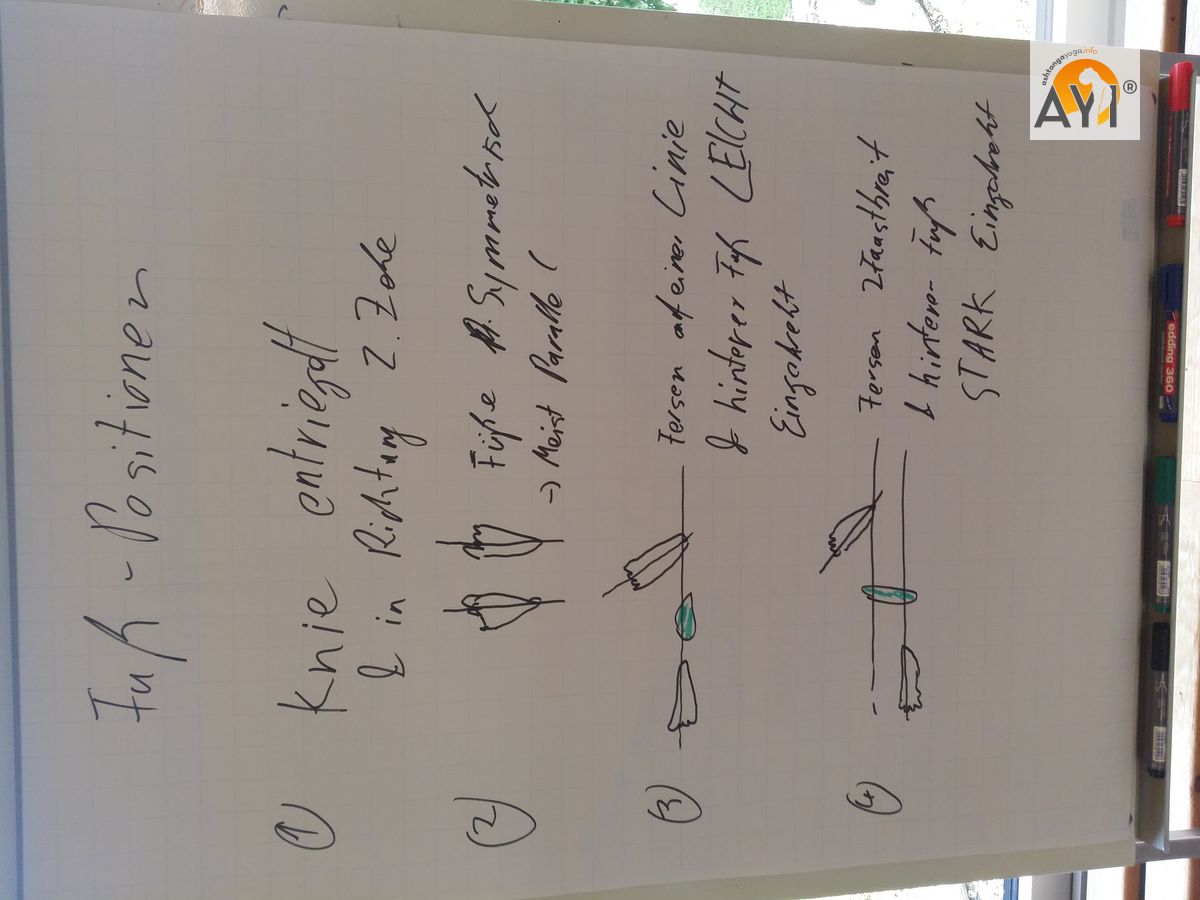 Fuß-Positionen
① Knie entriegelt
& in Richtung 2. Zehe
② Füße Symmetrisch
-> Meist Parallel
③ Fersen auf einer Linie
& hinterer Fuß LEICHT
Eingedreht
④ Fersen 2Faustbreit
& hinterer Fuß
STARK Eingedreht
ashtangayoga.info
AYI®
edding 360